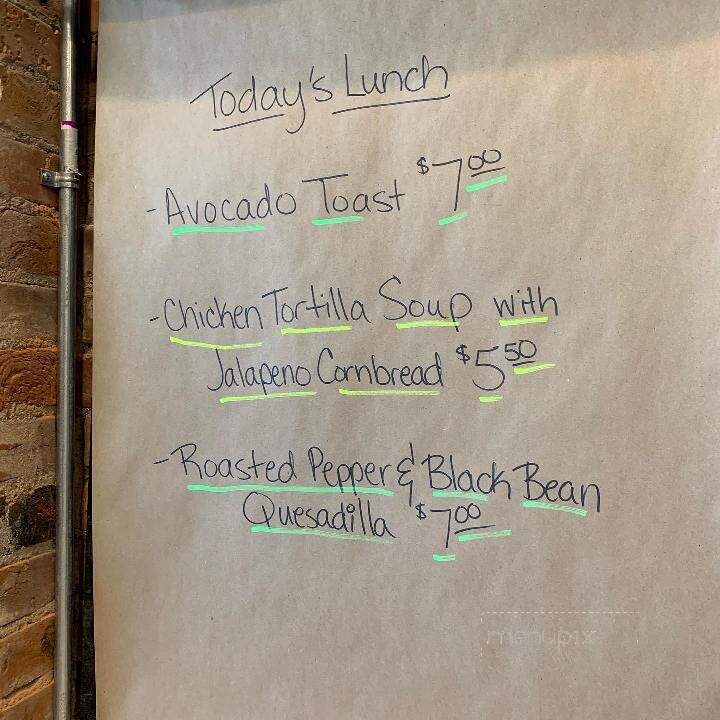 Today's Lunch
- Avocado Toast $7.00
- Chicken Tortilla Soup with
Jalapeno Cornbread $5.50
- Roasted Pepper & Black Bean
Quesadilla $7.00
menupix